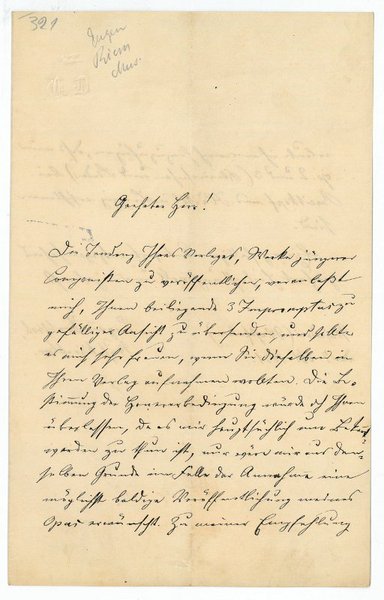 321
Eugen
Mus.
Geehrter Herr!
Die Tendenz Ihres Verlages, Werke jüngerer
Componisten zu veröffentlichen, veranlaßt
mich, Ihnen beiliegende 3 Impromptus zu
gefälliger Ansicht zu übersenden, und sollte
es mich sehr freuen, wenn Sie dieselben in
Ihren Verlag aufnehmen wollten. Die Be-
stimmung der Honorarbedingung würde ich Ihnen
überlassen, da es mir hauptsächlich um Bekannt
werden zu thun ist, nur wäre mir aus dem-
selben Grunde im Falle der Annahme eine
möglichst baldige Veröffentlichung meines
Opus erwünscht. Zu meiner Empfehlung